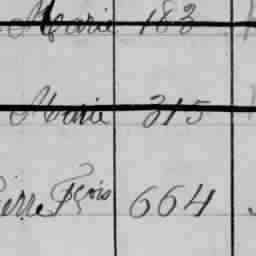 Marie 183
Marie 315
Pierre Fçois 664